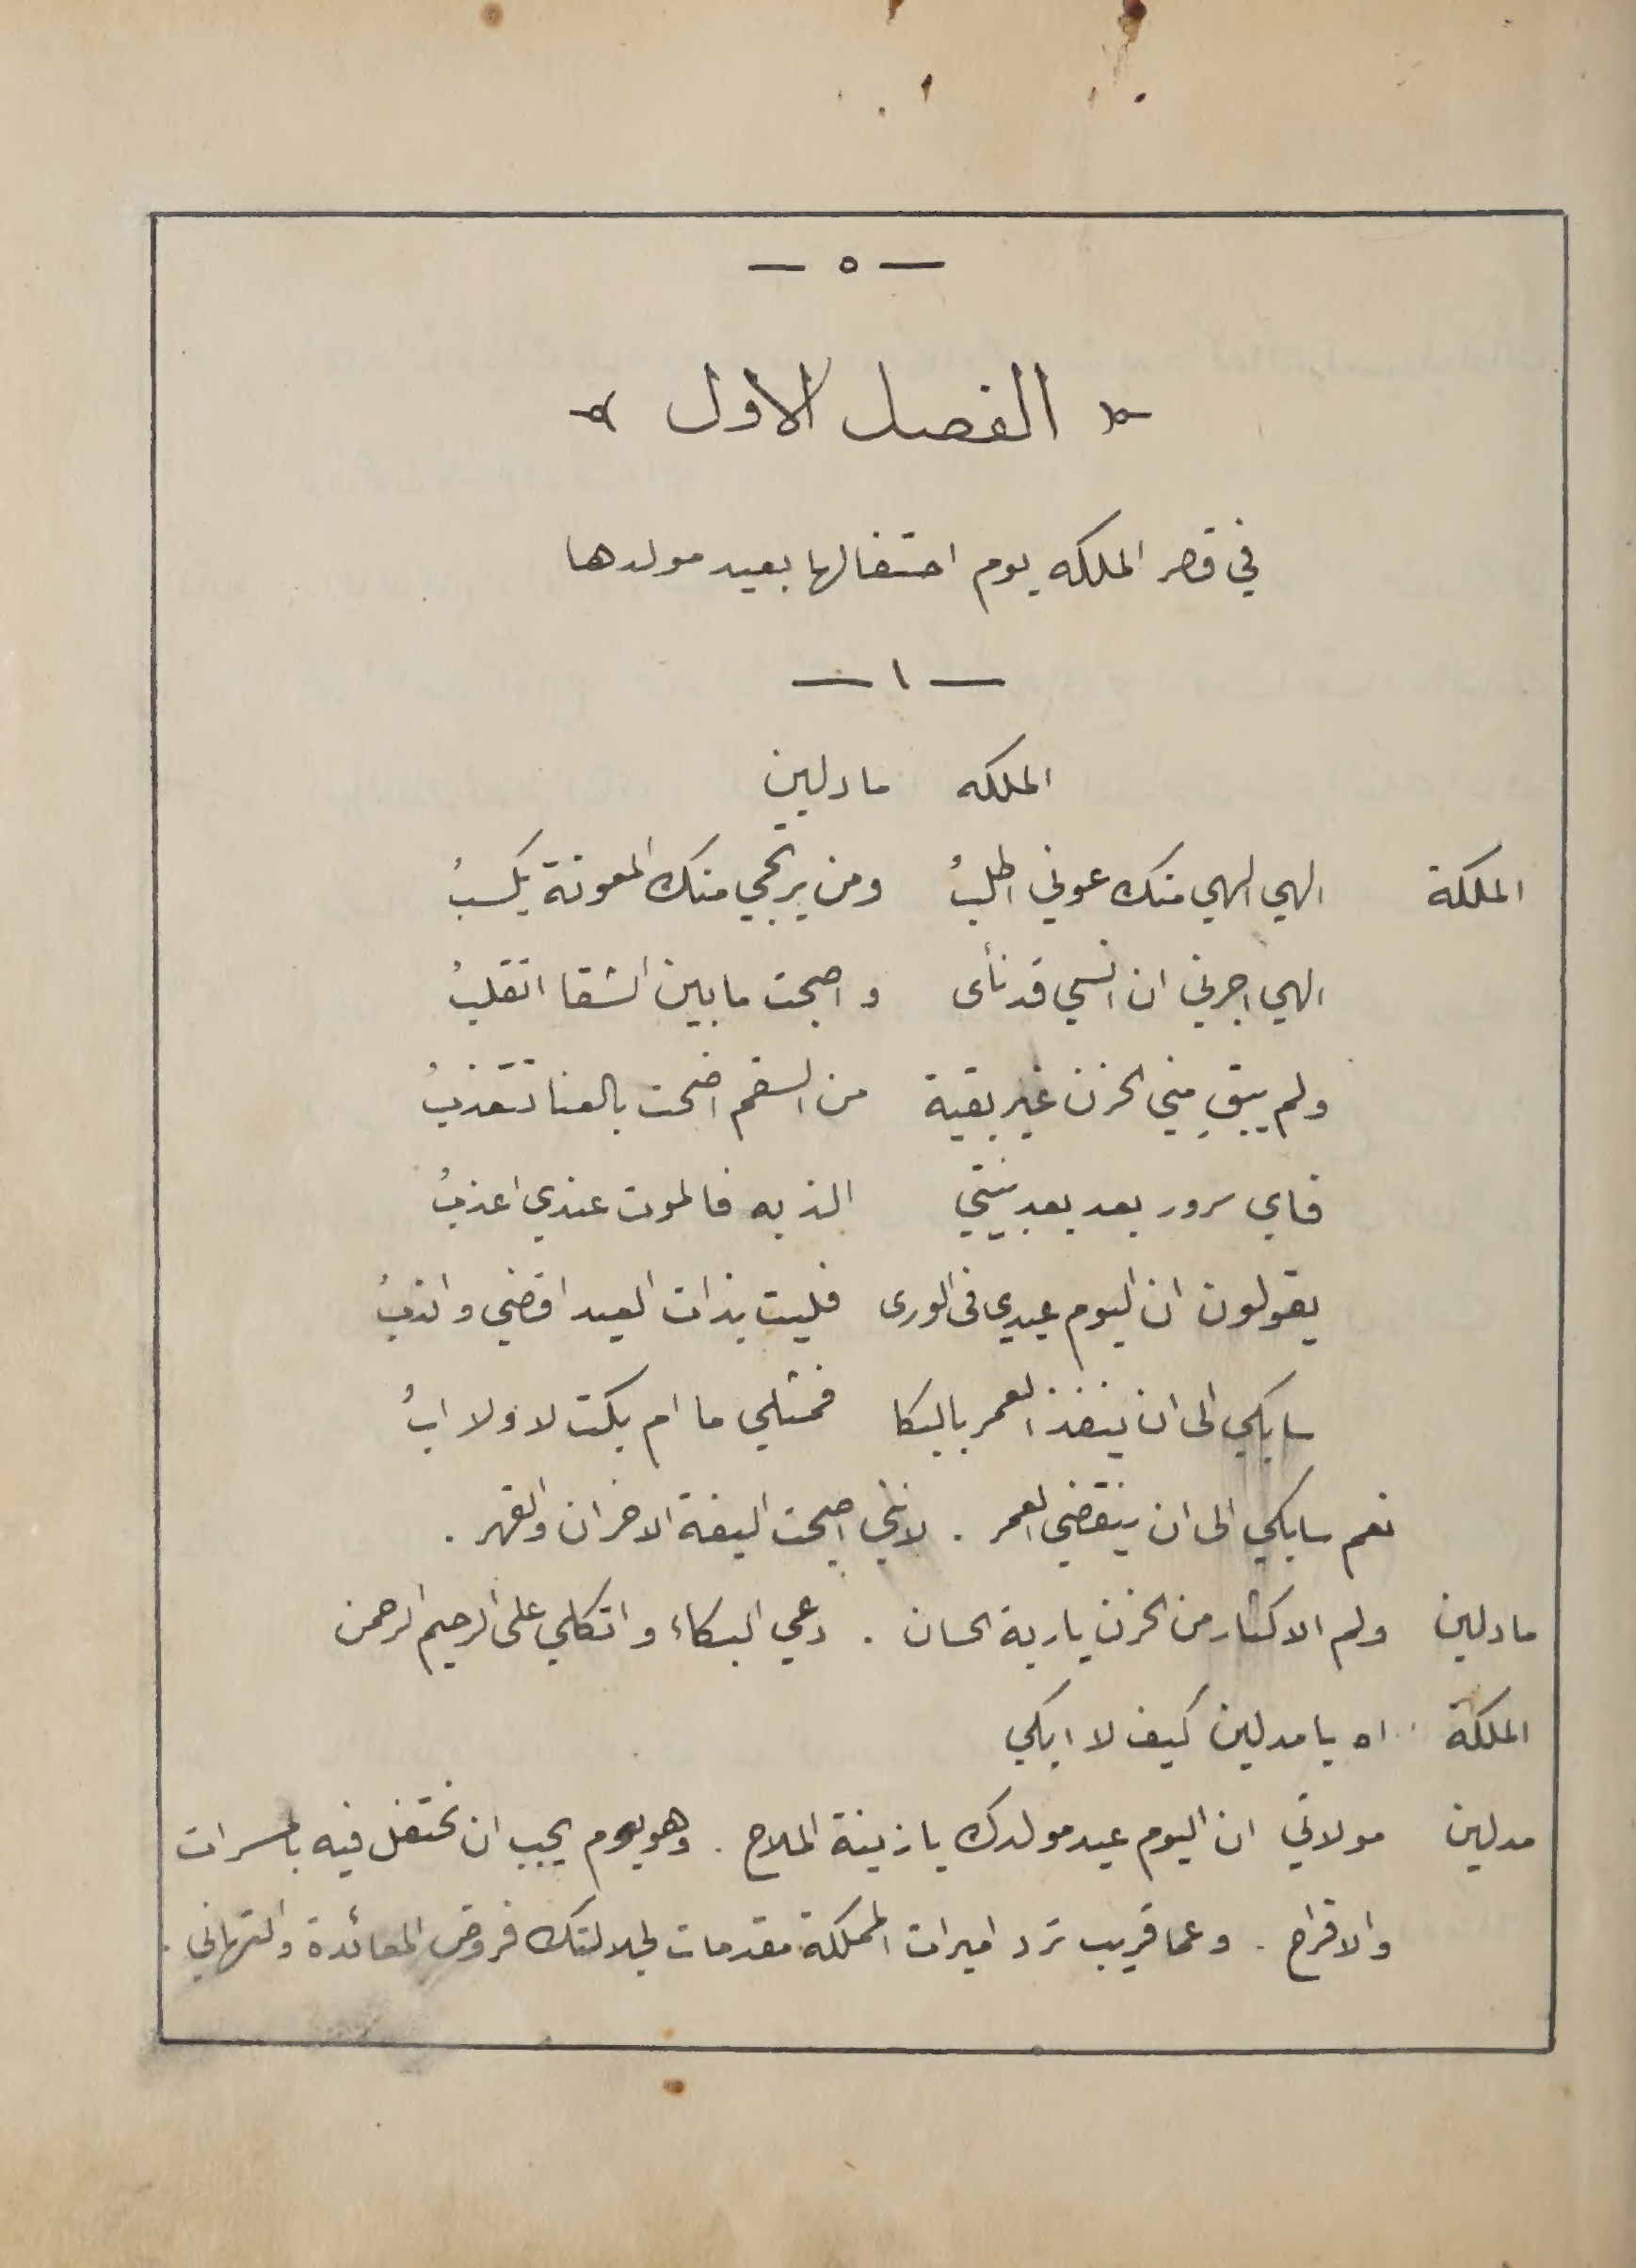 — ٥ —
الفصل الاول
في قصر الملكه يوم احتفالها بعيد مولدها
— ١ —
الملكه مادلين
الملكة الهي الهي منك عوني اطلبُ ومن يرتجي منك المعونة يكسبُ
الهي اجرني ان انسي قد نأى واصبحت ما بين الشقا اتقلبُ
ولم يبقِ مني الحزن غير بقية من السقم اضحت بالعنا تتعذبُ
فاي سرور بعد بعد بنيتي الذ به فالموت عندي اعذبُ
يقولون ان اليوم عيدي في الورى فليت بذات العيد اقضي واندبُ
سابكي الى ان ينفذ العمر بالبكا فمثلي ما ام بكت لا ولا ابُ
نعم سابكي الى ان ينقضي العمر . لانني اصبحت اليفة الاحزان والقهر .
مادلين ولم الاكثار من الحزن يا ربة الحسان . دعي البكاء واتكلي على الرحيم الرحمن
الملكة اه يا مدلين كيف لا ابكي
مدلين مولاتي ان اليوم عيد مولدك يا زينة الملاح . وهو يوم يجب ان نحتفل فيه بالمسرات
والافراح . وعما قريب ترد اميرات المملكة مقدمات لجلالتك فروض المعائدة والتهاني .